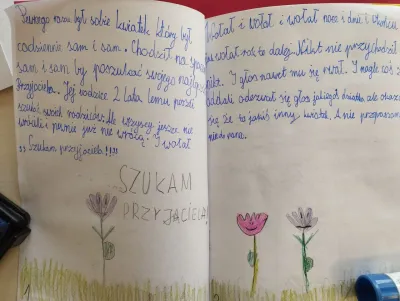 Pewnego razu był sobie kwiatek, który był
codziennie sam i sam. Chodził na spac
sam i sam by poszukać swojego najlep
przyjaciela. Jej rodzice 2 lata temu poszli
szukać swoich rodziców. Ale wszyscy jeszcze nie
wrócili i pewnie już nie wrócą. I wołał
,, Szukam przyjaciela!!!!
SZUKAM
PRZYJACIELA!
Wołał i wołał i wołał nocą i dnie i
wołał rok to dalej. Nikt nie przychodził
nikt. I głos nawet mu się rwał. I nagle coś z
oddali odezwał się głos jakiegoś ale okaza
się że to jakiś inny kwiatek. A nie przepraszam
pana.